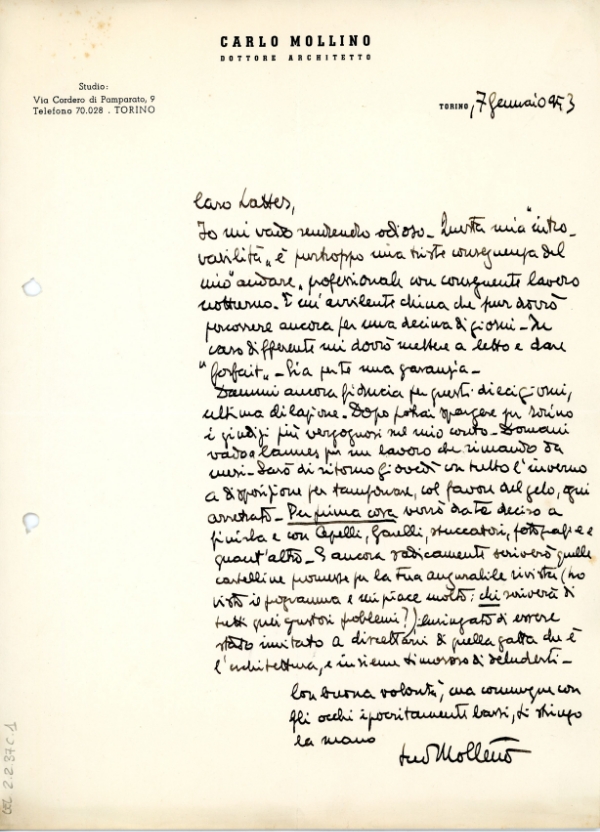 CARLO MOLLINO
DOTTORE ARCHITETTO
Studio:
Via Cordero di Pamparato, 9
Telefono 70.028 . TORINO
TORINO, 7 Gennaio 953
Caro Lattes,
Io mi vado rendendo odioso - Questa mia "intro-
vabilità„ è purtroppo una triste conseguenza del
mio "andare„ professionale con conseguente lavoro
notturno. È un'avvilente china che pur dovrò
percorrere ancora per una decina di giorni - In
caso differente mi dovrò mettere a letto e dare
"forfait„ - Sia per te una garanzia -
Dammi ancora fiducia per questi dieci giorni,
ultima dilazione - Dopo potrai spargere per Torino
i giudizi più vergognosi sul mio conto - Domani
vado a Cannes per un lavoro che rimando da
mesi - Sarò di ritorno giovedì con tutto l'inverno
a disposizione per tamponare, col favore del gelo, ogni
arretrato - Per prima cosa verrò da te deciso a
finirla e con Apelli, stuccatori, fotografie e
quant'altro - E ancora radicamente scriverò quelle
cartelline promesse per la tua augurabile rivista (ho
visto il programma e mi piace molto: chi scriverà di
tutti quei gustosi problemi?) di essere
stato invitato a dilettarmi di quella gatta che è
l'architettura, e insieme timoroso di deluderti -
Con buona volontà, ma comunque con
gli occhi ipocritamente bassi, ti stringo
la mano
tuo Mollino
COL 2.2.87 C.1